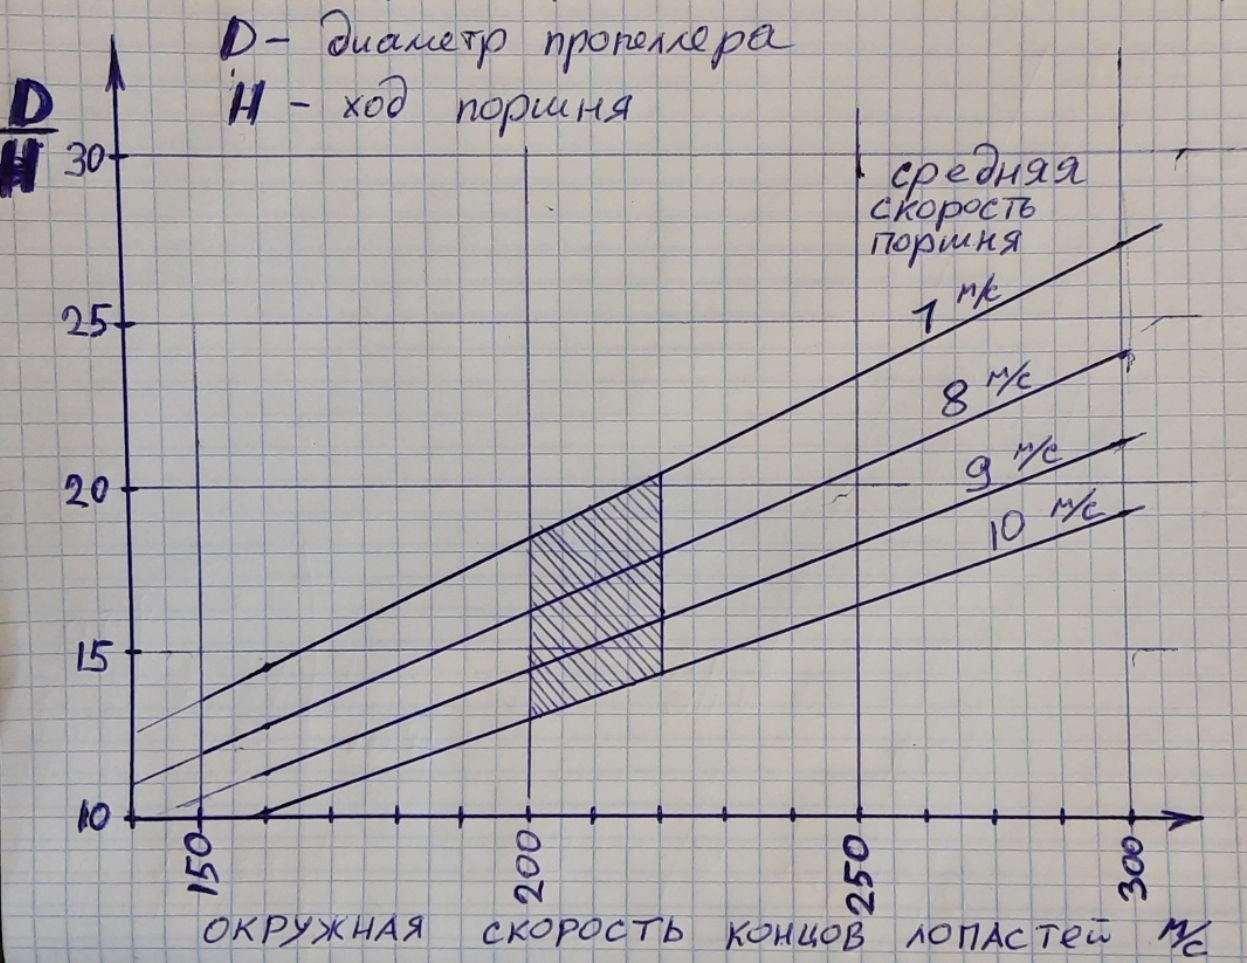 D - диаметр пропеллера
H - ход поршня
D
H
30
25
20
15
10
средняя
скорость
поршня
7 м/с
8 м/с
9 м/с
10 м/с
150
200
250
300
ОКРУЖНАЯ СКОРОСТЬ КОНЦОВ ЛОПАСТЕЙ м/с